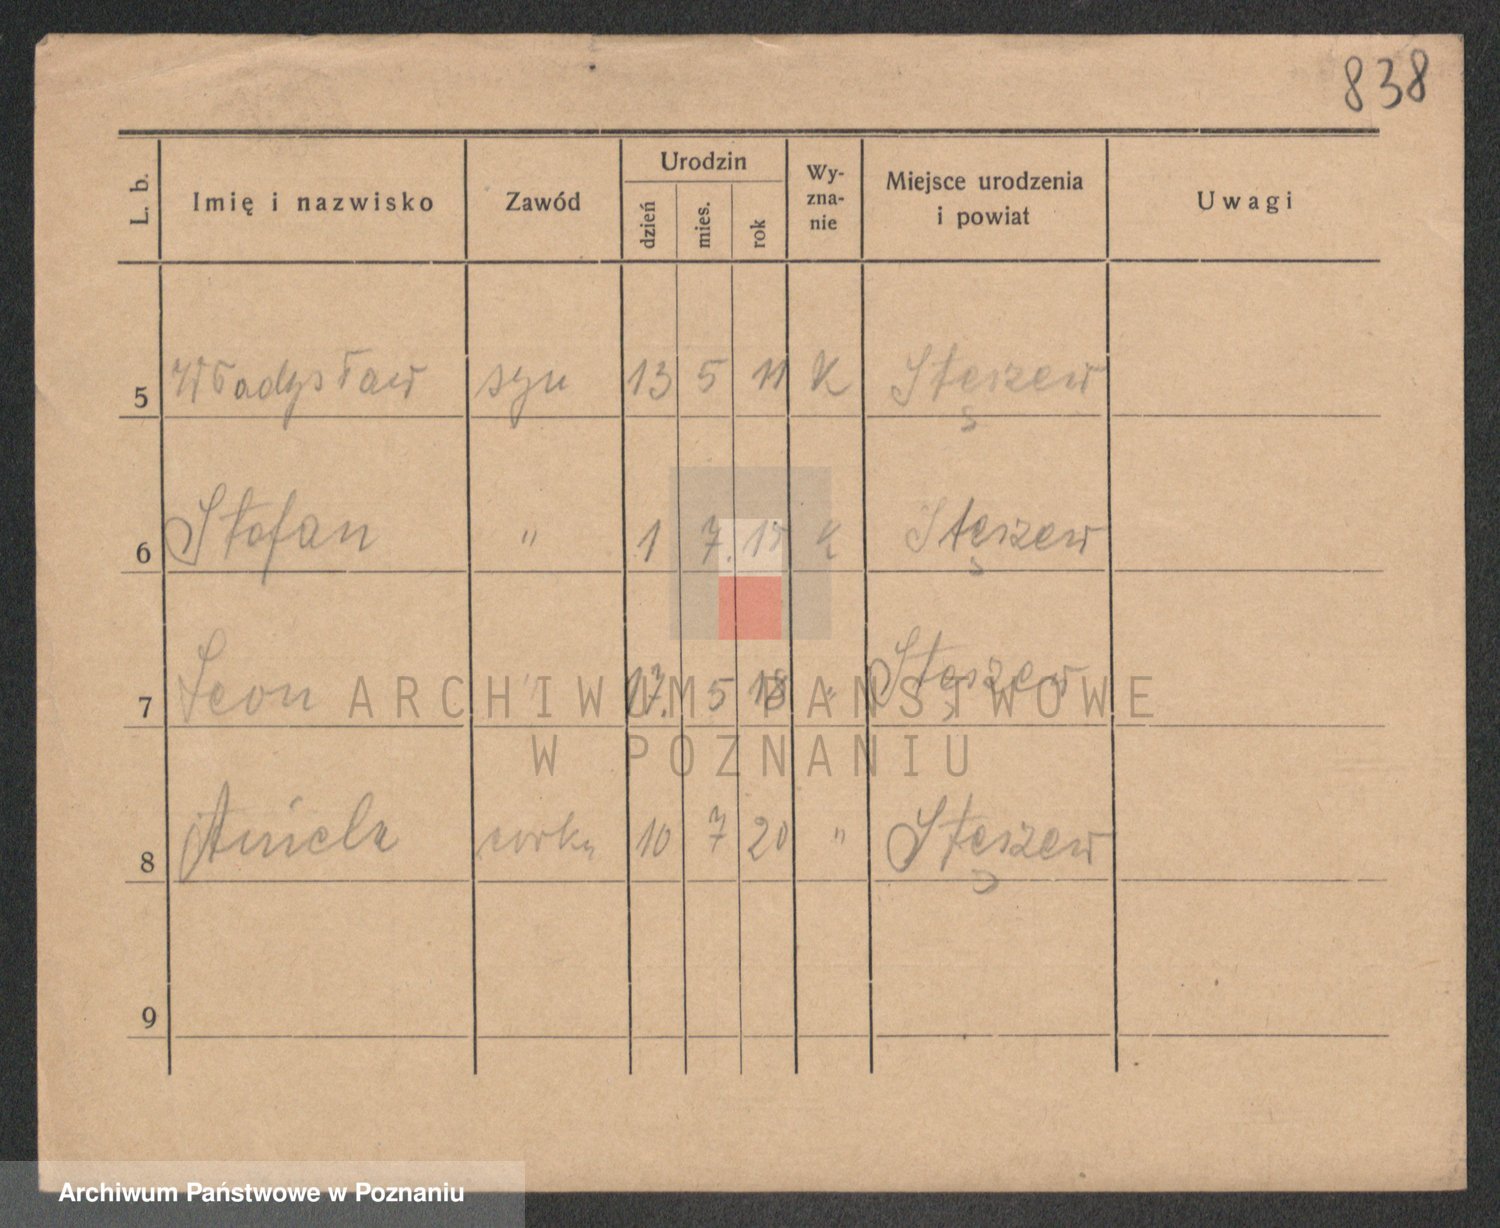 838
L. b. Imię i nazwisko Zawód Urodzin dzień mies. rok Wy-zna-nie Miejsce urodzenia i powiat Uwagi
5 Władysław syn 13 5 11 K Stęszew
6 Stefan " 1 7. K Stęszew
7 Leon " 17. 5 18 " Stęszew
ARCHIWUM PAŃSTWOWE
W POZNANIU
8 Aniela corka 10 7 20 " Stęszew
9
Archiwum Państwowe w Poznaniu